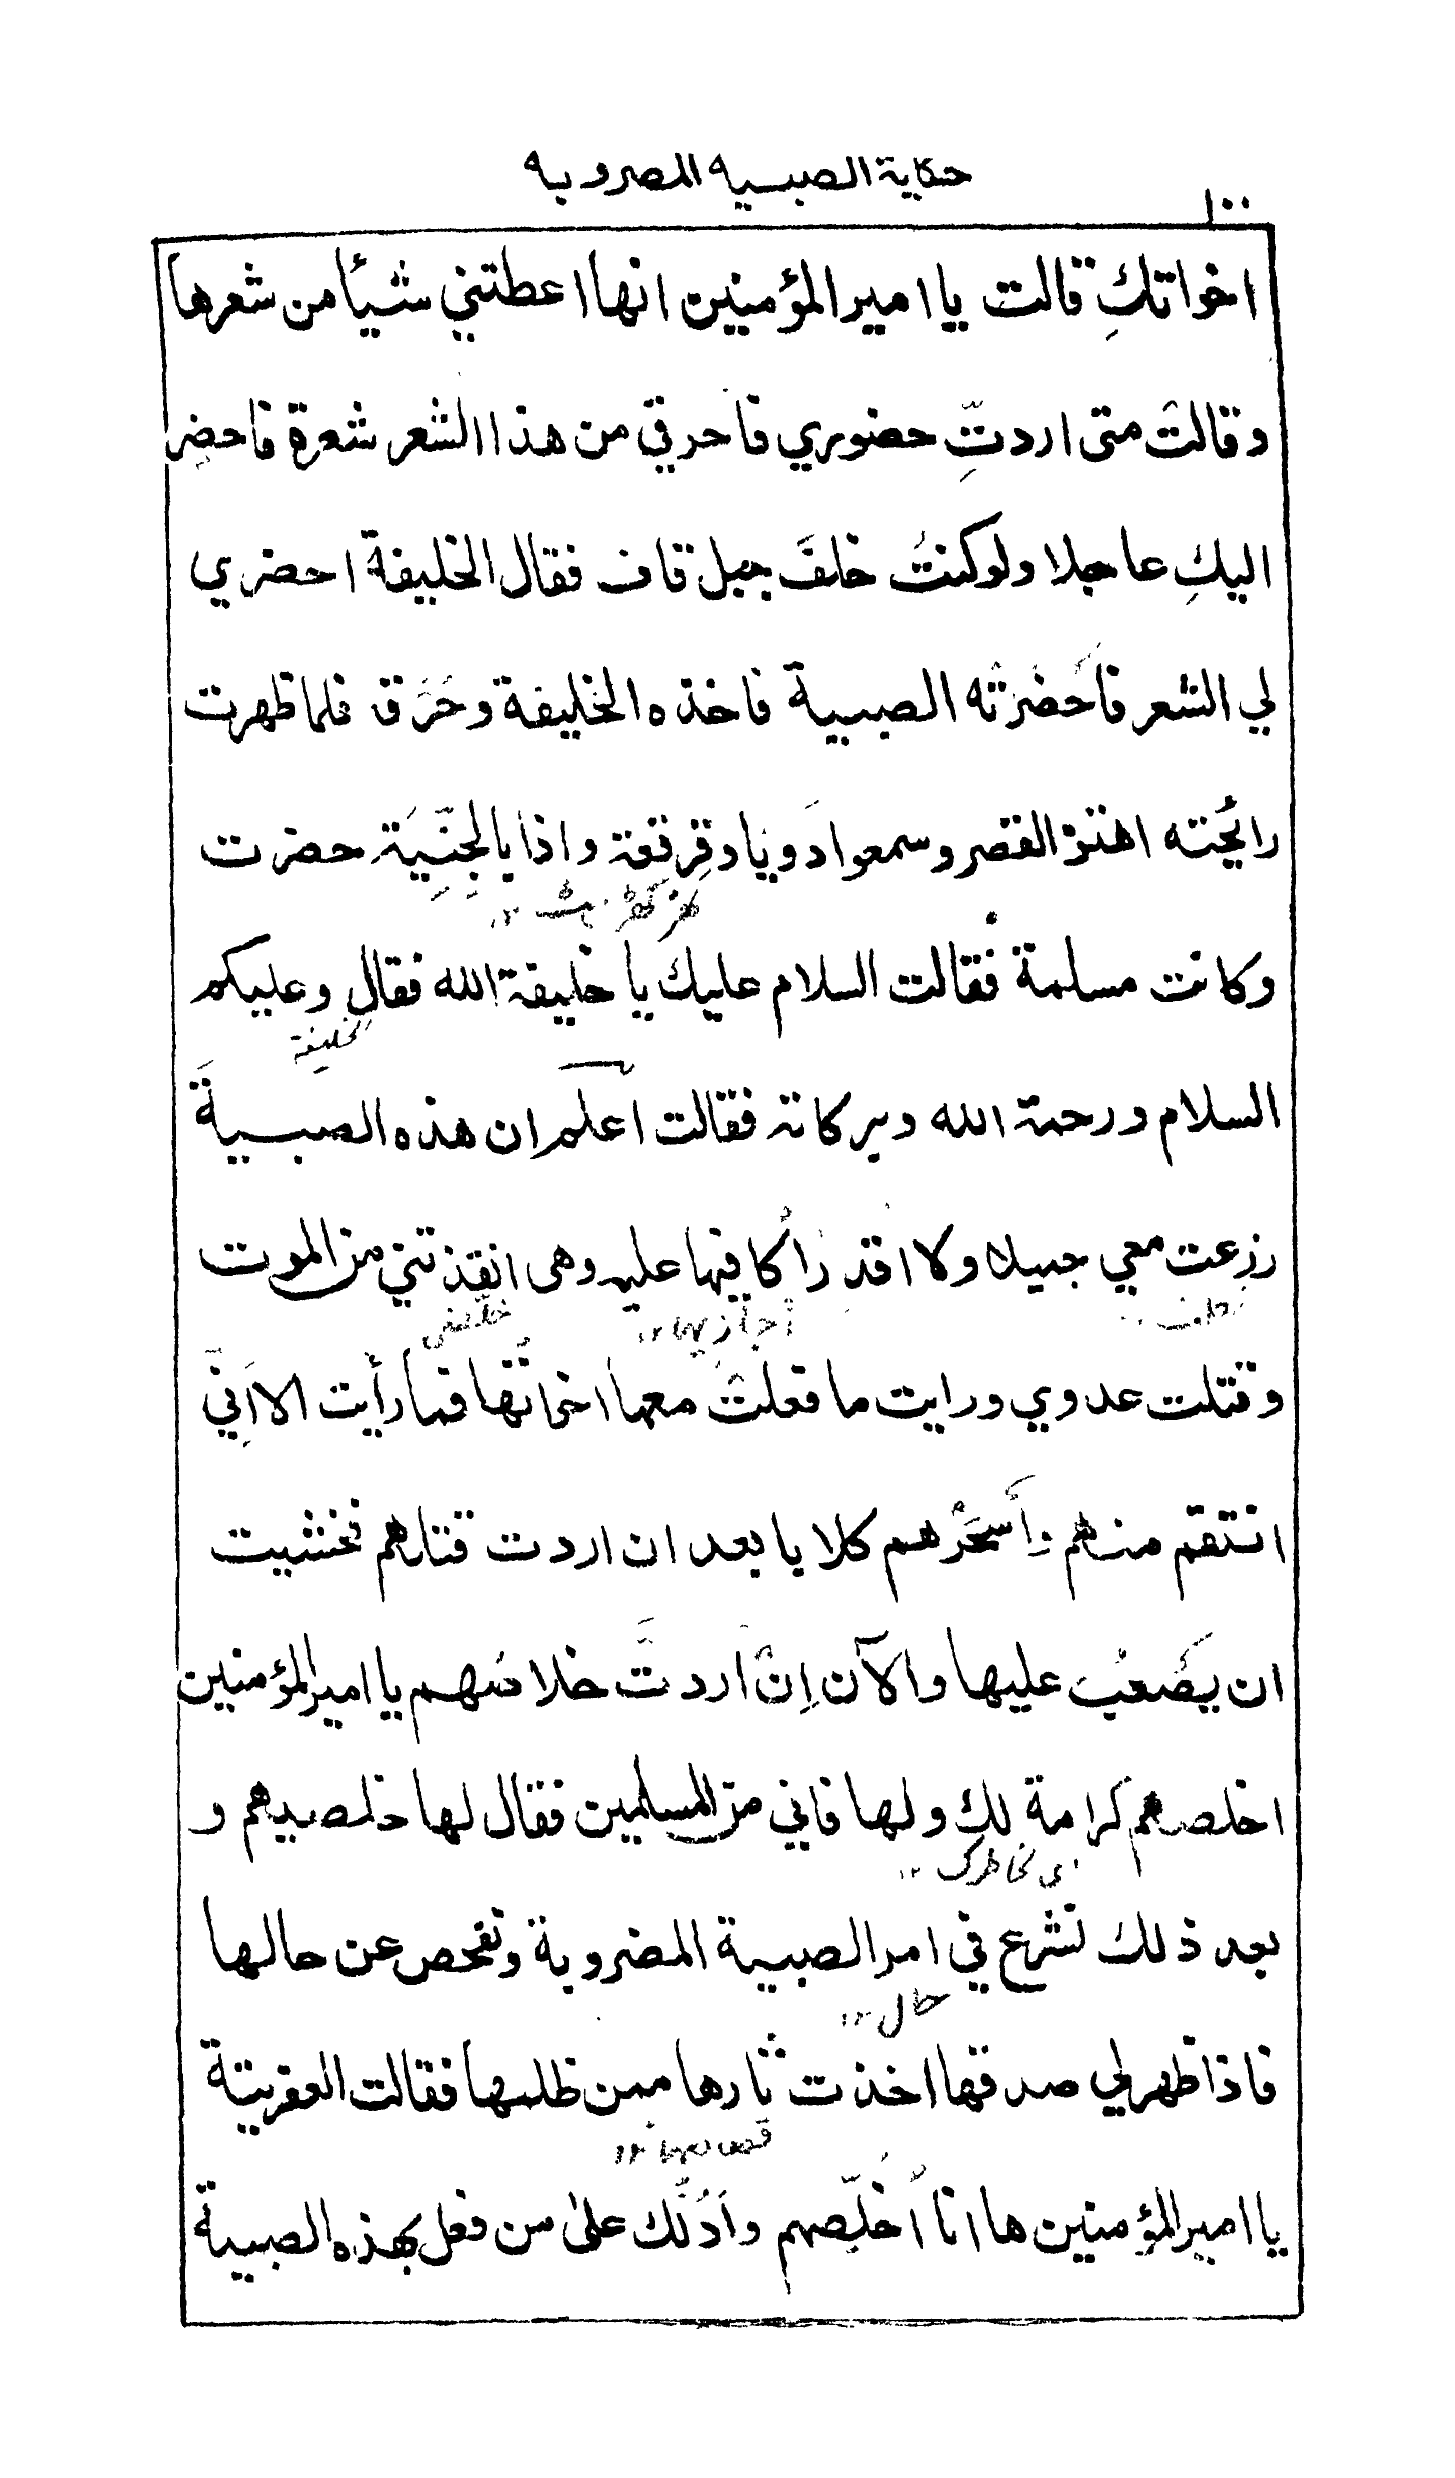 حكاية الصبية المضروبة
١٠٠
اخواتكِ قالت يا امير المؤمنين انها اعطتني شيأً من شعرها
وقالت متى اردتِّ حضوري فاحرقي من هذا الشعر شعرة فاحضِر
اليكِ عاجلا ولو كنتُ خلفَ جبل قاف فقال الخليفة احضري
لي الشعر فأَحضَرَتْه الصبية فاخذه الخليفة وحَرَّق فلما ظهرت
رائحته اهتز القصر وسمعوا دَويا وقِرقِعة واذا بالجِنِّيَة حضرت
وكانت مسلمة فقالت السلام عليك يا خليفة الله فقال وعليكم
الخليفة
السلام ورحمة الله وبركاته فقالت اعلم ان هذه الصبيةَ
زرعت معي جميلا ولا اقدر أُكافيها عليه وهى انقذتني من الموت
أجازيها ١٢
خلّصتني
وقتلت عدوي ورايت ما فعلتْ معها اخواتُها فما رأَيت الا اَنِّي
انتقم منهم وأَسحَرُهم كلابا بعد ان اردت قتلهم فخشيت
ان يَصعُب عليها والآن اِنْ اردتَّ خلاصهم يا امير المؤمنين
اخلصهم كرامة لك ولها فاني من المسلمين فقال لها خلصيهم و
اى لخاطرك ١٢
بعد ذلك نشرع في امر الصبية المضروبة ونفحص عن حالها
حال ١٢
فاذا ظهر لي صدقها اخذت ثارها ممن ظلمها فقالت العفريتة
قصاصها ١٢
يا امير المؤمنين ها انا اُخلِّصهم وادُلُّك على من فعل بهذه الصبية